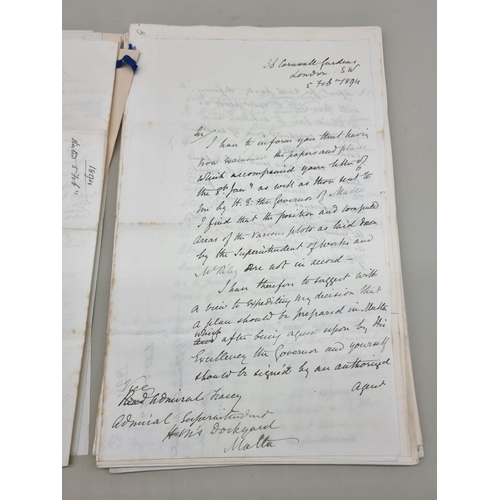 36 Cornwall Gardens
London SW
5 Feby 1894
Sir
I have to inform you that having
now examined the papers and plans
which accompanied your letter of
the 8th Jany as well as those sent to
me by H.E. the Governor of Malta
I find that the position and computed
areas of the various plots as laid down
by the Superintendent of Works and
Mr are not in accord —
I have therefore to suggest with
a view to expediting my decision that
a plan should be prepared in Malta
which after being agreed upon by His
Excellency the Governor and yourself
should be signed by an authorized
Agent
Rear Admiral Tracey
Admiral Superintendent
H.M's Dockyard
Malta
1894